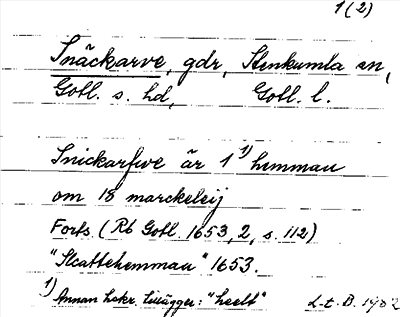 1(2)
Snäckarve, gdr, Stenkumla sn,
Gotl. s. hd, Gotl. l.
Snickarfwe är 1 1) hemman
om 18 marckeleij
Forss. (Rb Gotl. 1653, 2, s. 112)
"Skattehemman" 1653.
1) Annan hskr. tillägger: "heelt" L.t.B. 1982